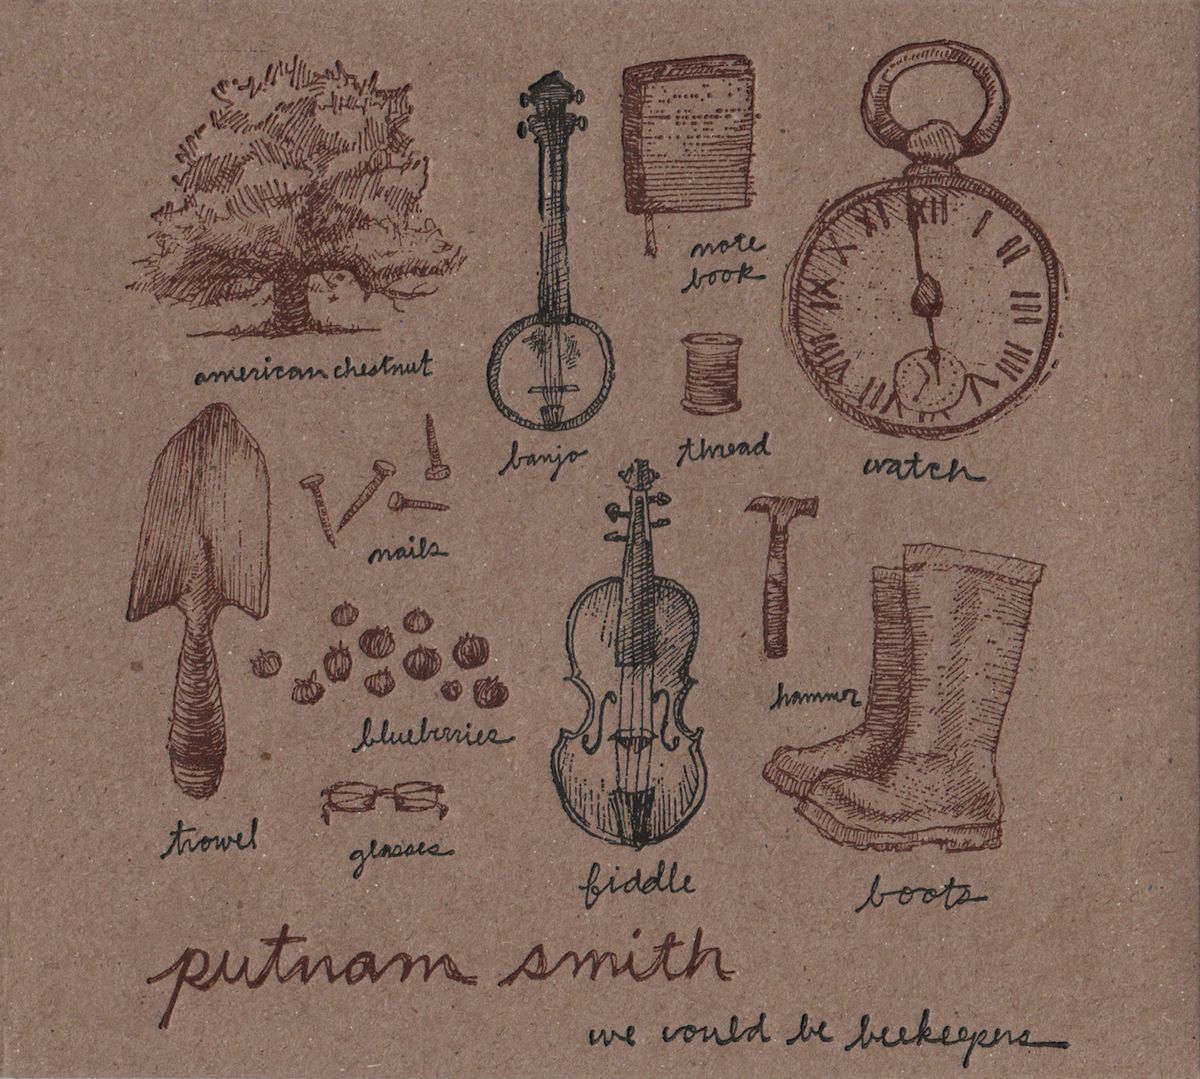 american chestnut
banjo
note
book
thread
XII
I
II
III
IIII
V
VII
VIII
IX
X
XI
watch
nails
trowel
blueberries
glasses
fiddle
hammer
boots
putnam smith
we could be beekeepers